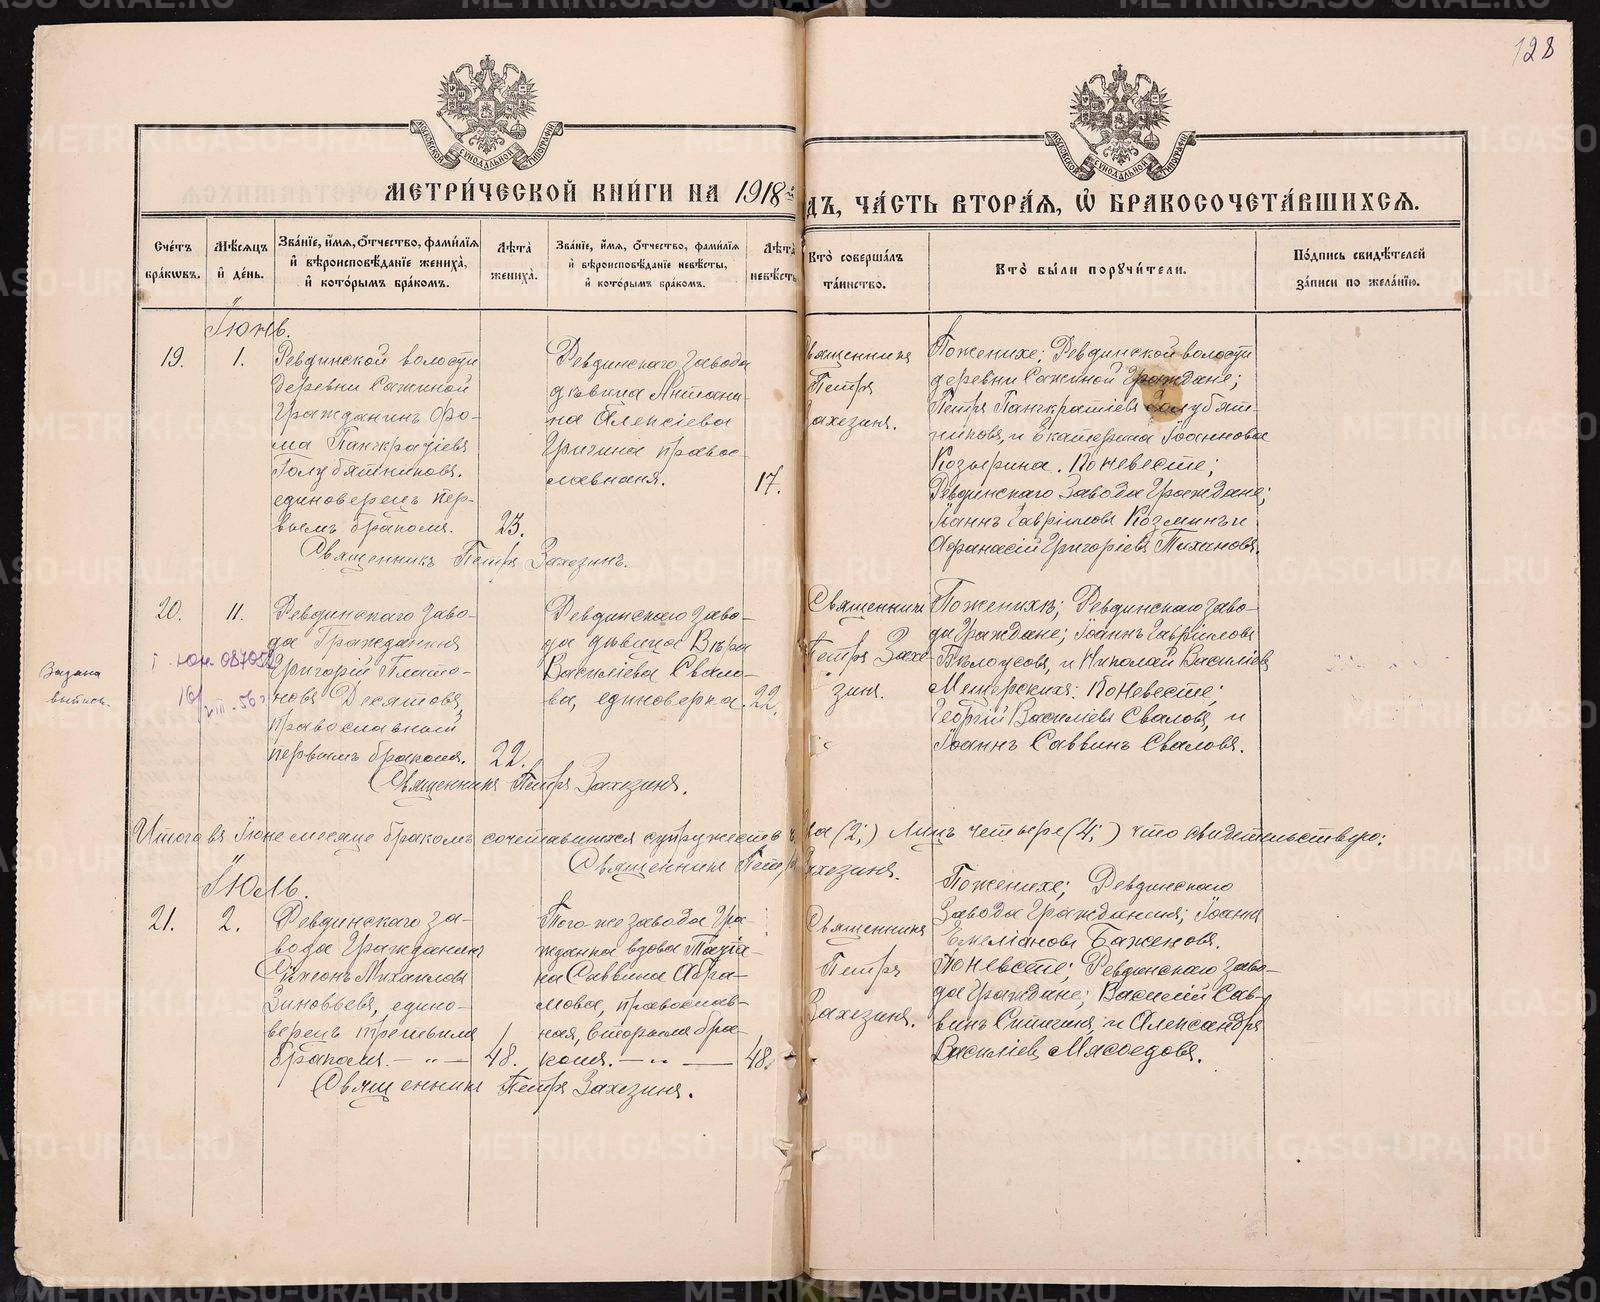 128
МОСКОВСКОЙ СѴНОДАЛЬНОЙ ТИПОГРАФІИ
МОСКОВСКОЙ СѴНОДАЛЬНОЙ ТИПОГРАФІИ
МЕТРИ́ЧЕСКОЙ КНИ́ГИ НА 1918
ДЪ, ЧА́СТЬ ВТОРА́Я, Ѡ҆ БРАКОСОЧЕТА́ВШИХСЯ.
Сче́тъ бра́кѡвъ.
Мѣ́сяцъ и҆ де́нь.
Зва́нїе, и҆́мя, ѻ҆́тчество, фами́лїя и҆ вѣроисповѣ́данїе жениха̀, и҆ кото́рымъ бра́комъ.
Лѣ́та жениха̀.
Зва́нїе, и҆́мя, ѻ҆́тчество, фами́лїя и҆ вѣроисповѣ́данїе невѣ́сты, и҆ кото́рымъ бра́комъ.
Лѣ́та невѣ́сты
Кто̀ соверша́лъ та́инство.
Кто̀ бы́ли порꙋчи́тели.
По́дпись свидѣ́телей за́писи по жела́нїю.
Іюнь.
19.
1.
Ревдинской волости
деревни Сажиной
Гражданинъ Ѳо-
ма Панкратіевъ
Голубятниковъ.
единоверецъ пер-
вымъ бракомъ.
23.
Ревдинскаго завода
дѣвица Антони-
на Алексіева
Гричина правос-
лавная.
17.
Священникъ
Петръ
Захезинъ.
По женихе; Ревдинской волости
деревни Сажиной Граждане;
Петръ Панкратіевъ Голубят-
никовъ, и Екатерина Іоаннова
Козырина. По невесте;
Ревдинскаго Завода Граждане;
Іоаннъ Гавріиловъ Козминъ и
Афанасій Григоріевъ Тихановъ.
Священникъ Петръ Захезинъ.
20.
11.
Ревдинскаго Заво-
да Гражданинъ
Григорій Плато-
новъ Десятовъ,
православный
первымъ бракомъ.
22.
Ревдинскаго Заво-
да дѣвица Вѣра
Василіева Свало-
ва, единоверка.
22.
Священникъ
Петръ Захе-
зинъ.
По женихѣ; Ревдинскаго Заво-
да Граждане; Іоаннъ Гавріиловъ
Бѣлоусовъ, и Николай Василіевъ
Мещерскихъ. По невесте;
Георгій Василіевъ Сваловъ, и
Іоаннъ Саввинъ Сваловъ.
Выдана
выпись.
Священникъ Петръ Захезинъ.
Итого въ Іюне месяце бракомъ сочетавшихся супружествъ два (2;) лицъ четыре (4;) что свидетельствую:
Священникъ Петръ Захезинъ.
Іюль.
21.
2.
Ревдинскаго за-
вода Гражданинъ
Симеонъ Михаиловъ
Зиновьевъ, едино-
верецъ третьимъ
бракомъ.
48.
Того же завода Гра-
жданка вдова Татіа-
на Саввина Абра-
мова, православ-
ная, вторымъ бра-
комъ.
48.
Священникъ
Петръ
Захезинъ.
По женихе; Ревдинскаго
Завода Гражданинъ; Іоаннъ
Емеліановъ Баженовъ.
По невесте; Ревдинскаго Заво-
да Граждане; Василій Сав-
винъ Ситигинъ, и Александръ
Василіевъ Мясоедовъ.
Священникъ Петръ Захезинъ.
METRIKI.GASO-URAL.RU